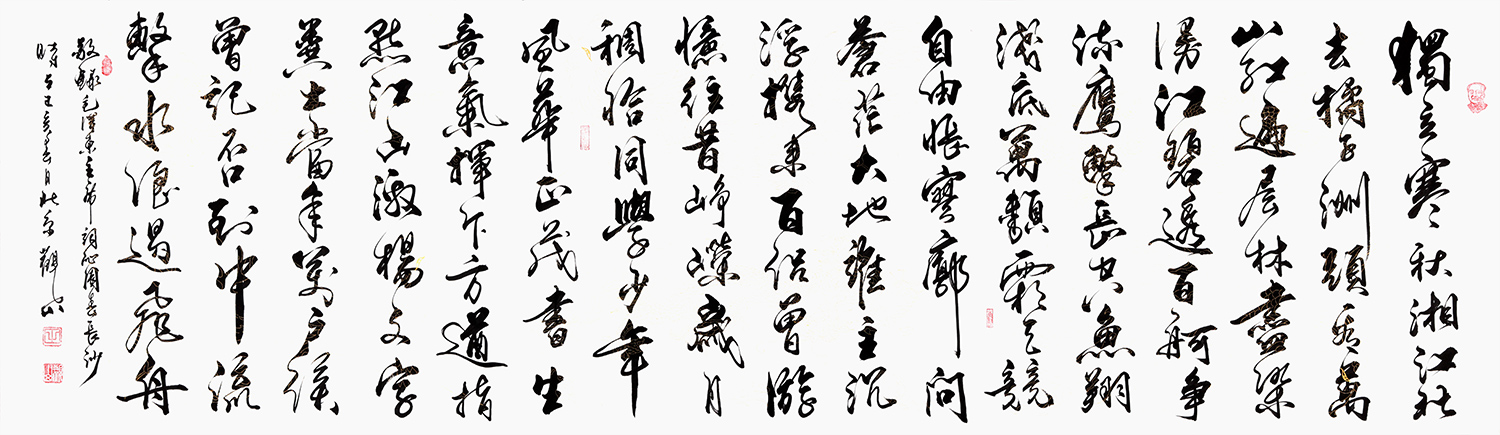 獨立寒秋湘江北
去橘子洲頭看萬
山紅遍層林盡染
漫江碧透百舸爭
流鷹擊長空魚翔
淺底萬類霜天競
自由悵寥廓問
蒼茫大地誰主沉
浮攜來百侶曾游
憶往昔崢嶸歲月
稠恰同學少年
風華正茂書生
意氣揮斥方遒指
點江山激揚文字
糞土當年萬戶侯
曾記否到中流
擊水浪遏飛舟
敬錄毛澤東主席詞沁園春長沙
時于己亥春月北京觀山